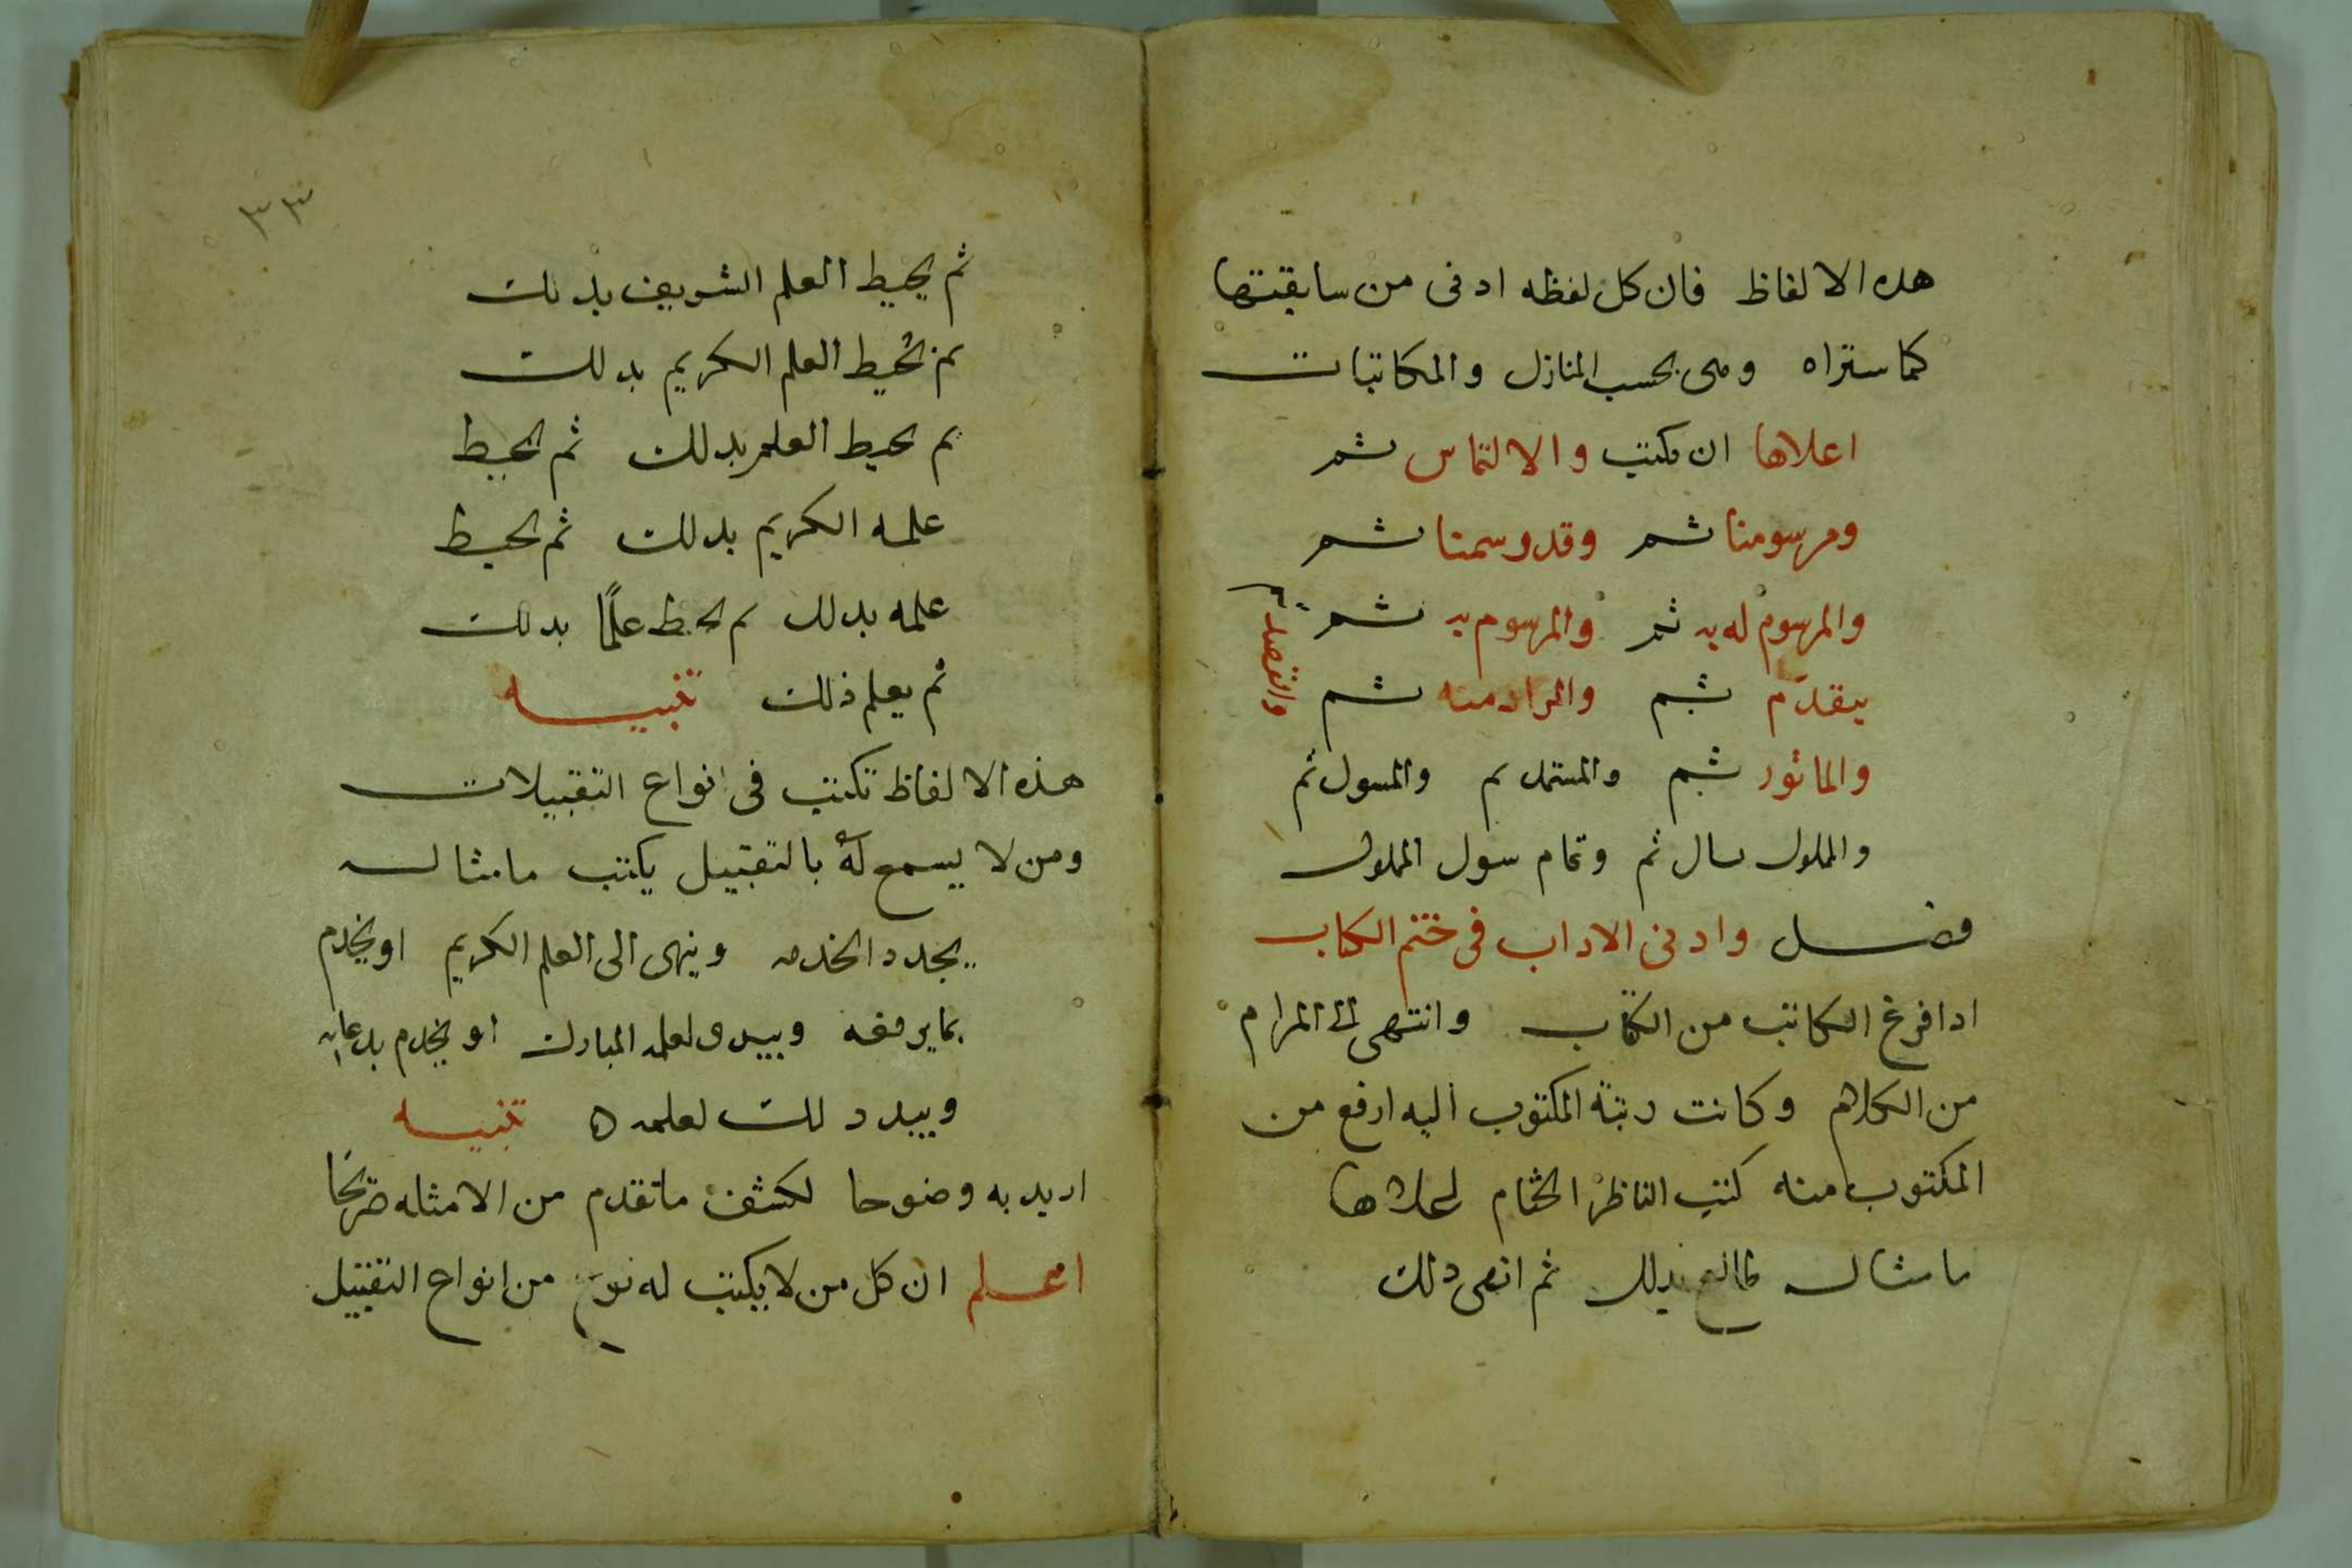 هده الالفاظ فان كل لفظه ادنى من سابقتها
كما ستراه وهى بحسب المنازل والمكاتبات
اعلاها ان يكتب والالتماس ثم
ومرسومنا ثم وقد رسمنا ثم
والمرسوم له به ثم والمرسوم به ثم
والقصد
يتقدم ثم والمراد منه ثم
والماثور ثم والمستمد ثم والمسول ثم
والمملوك سال ثم وتمام سول المملوك
فصل وادنى الاداب فى ختم الكتاب
ادا فرغ الكاتب من الكتاب وانتهى الى المرام
من الكلام وكانت رتبة المكتوب اليه ارفع من
المكتوب منه كتب الناظر الختام
ما مثاله طالع بدلك ثم انهى دلك
٣٣
ثم يحيط العلم الشريف بدلك
ثم يحيط العلم الكريم بدلك
ثم يحيط العلم بدلك ثم يحيط
علمه الكريم بدلك ثم يحيط
علمه بدلك ثم يحيط علمًا بدلك
ثم يعلم ذلك تنبيه
هذه الالفاظ تكتب فى انواع التقبيلات
ومن لا يسمح له بالتقبيل يكتب ما مثاله
يجدد الخدمه وينهى الى العلم الكريم او يخدم
بما يرفعه ويبدى لعلمه المبارك او يخدم بدعايه
ويبد دلك لعلمه ه تنبيه
اريد به وضوحا لكشف ما تقدم من الامثله صريحا
اعلم ان كل من لا يكتب له نوع من انواع التقبيل